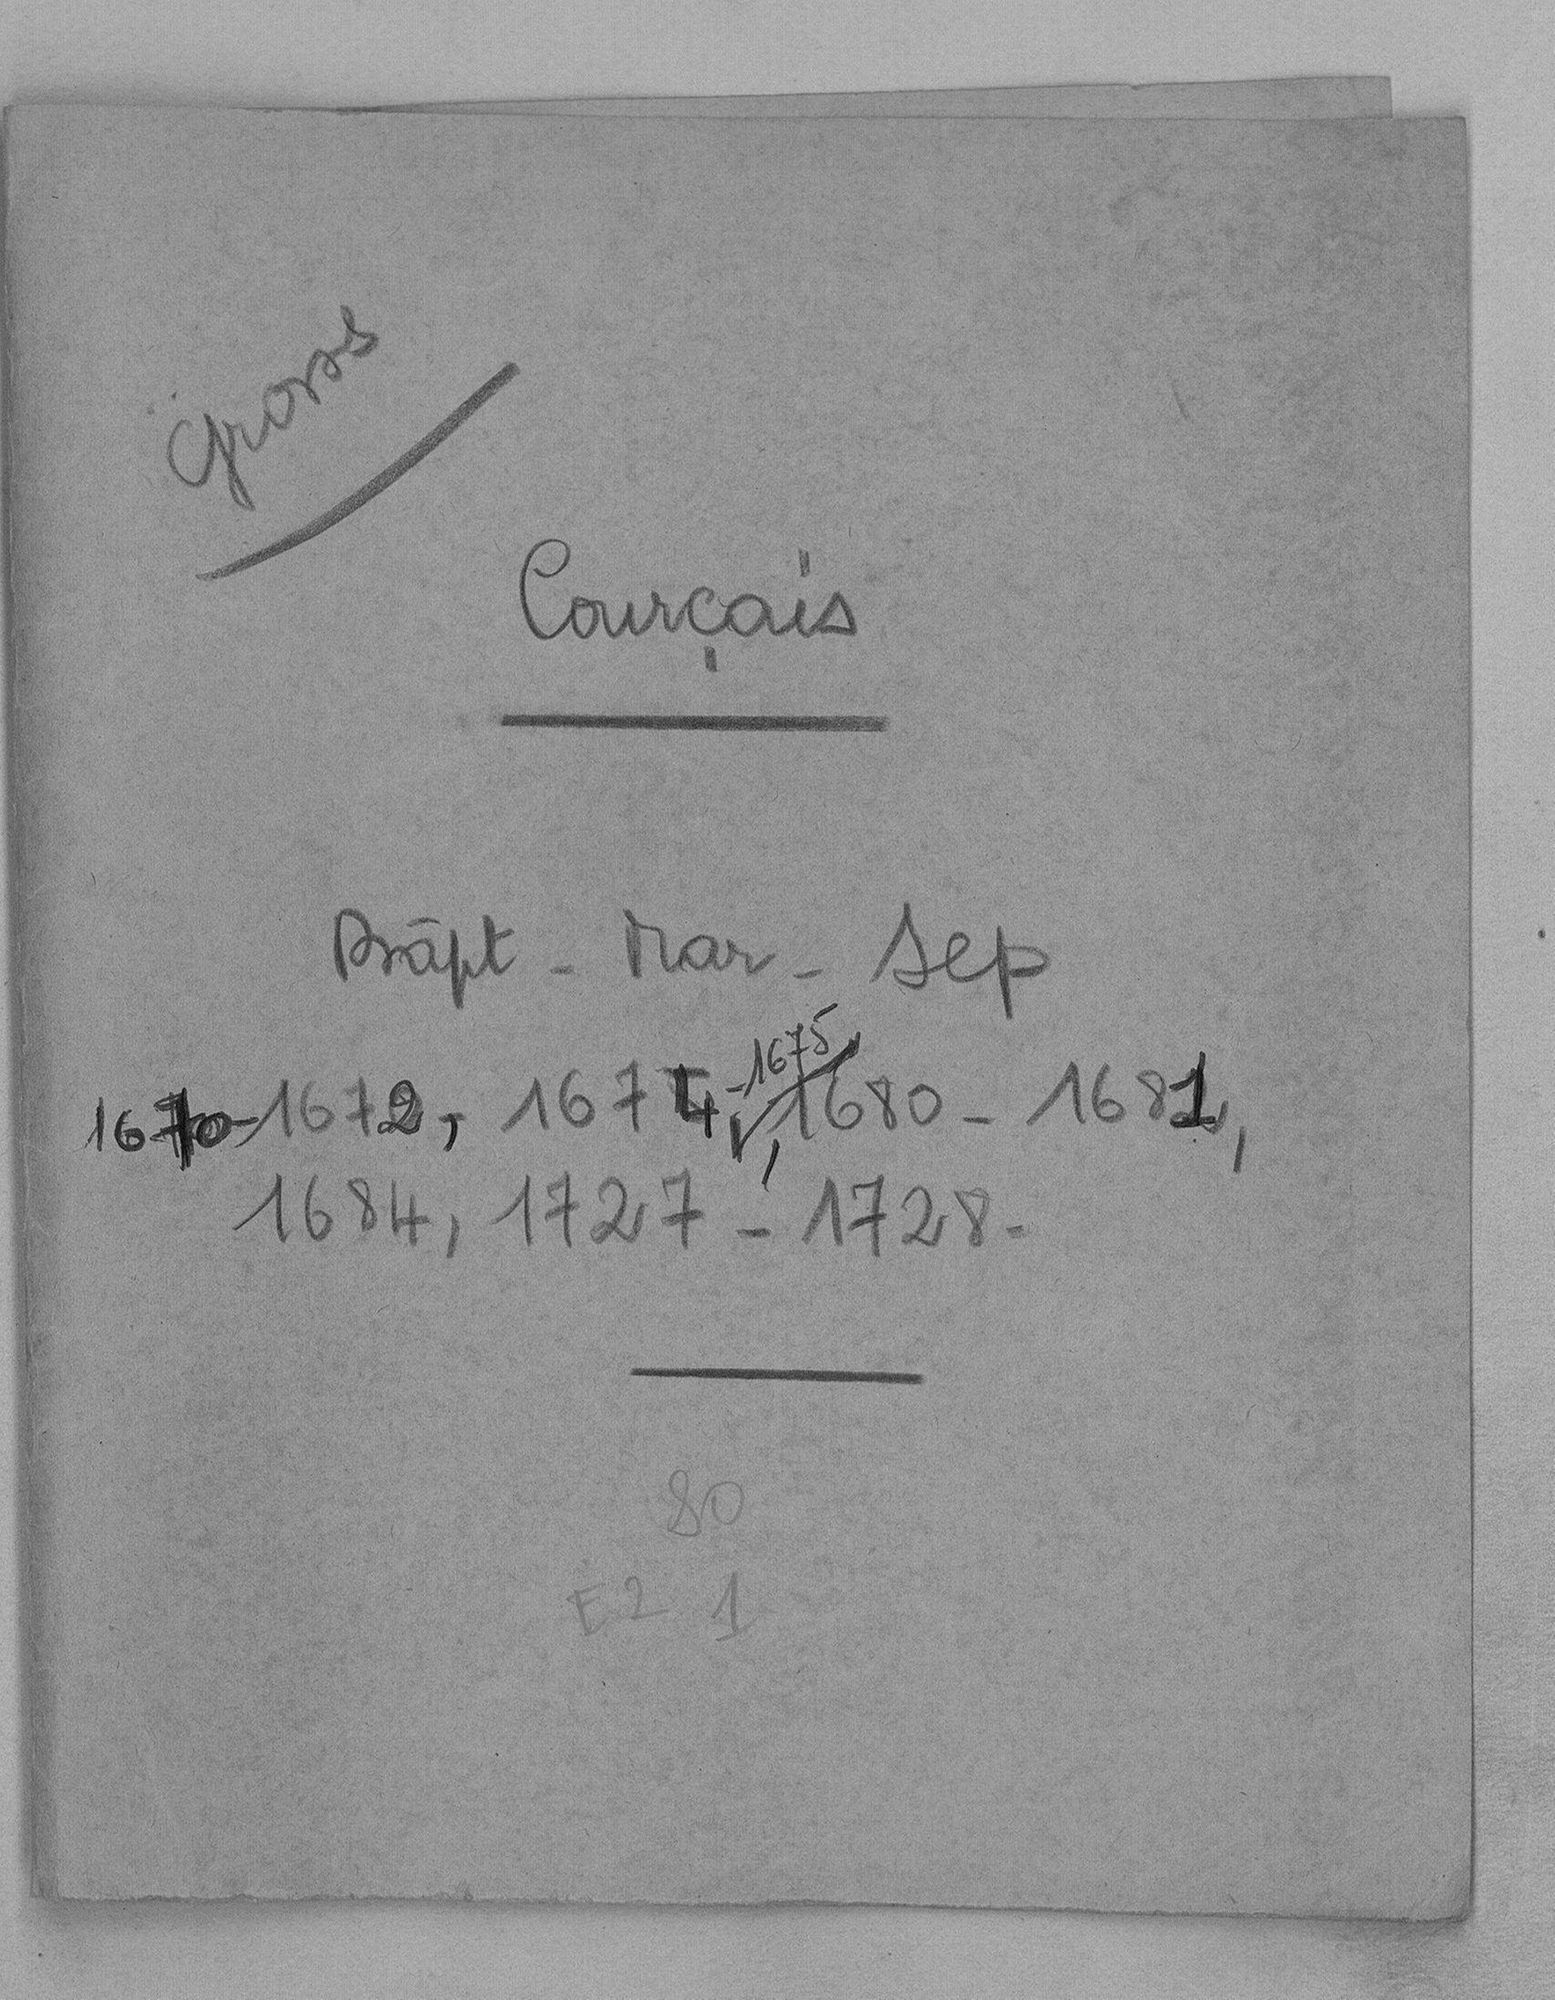 Gross
Courçais
Bapt - Mar - Sep
1670-1672, 1674-1675, 1680 - 1681,
1684, 1727 - 1728 -
80
E2 1